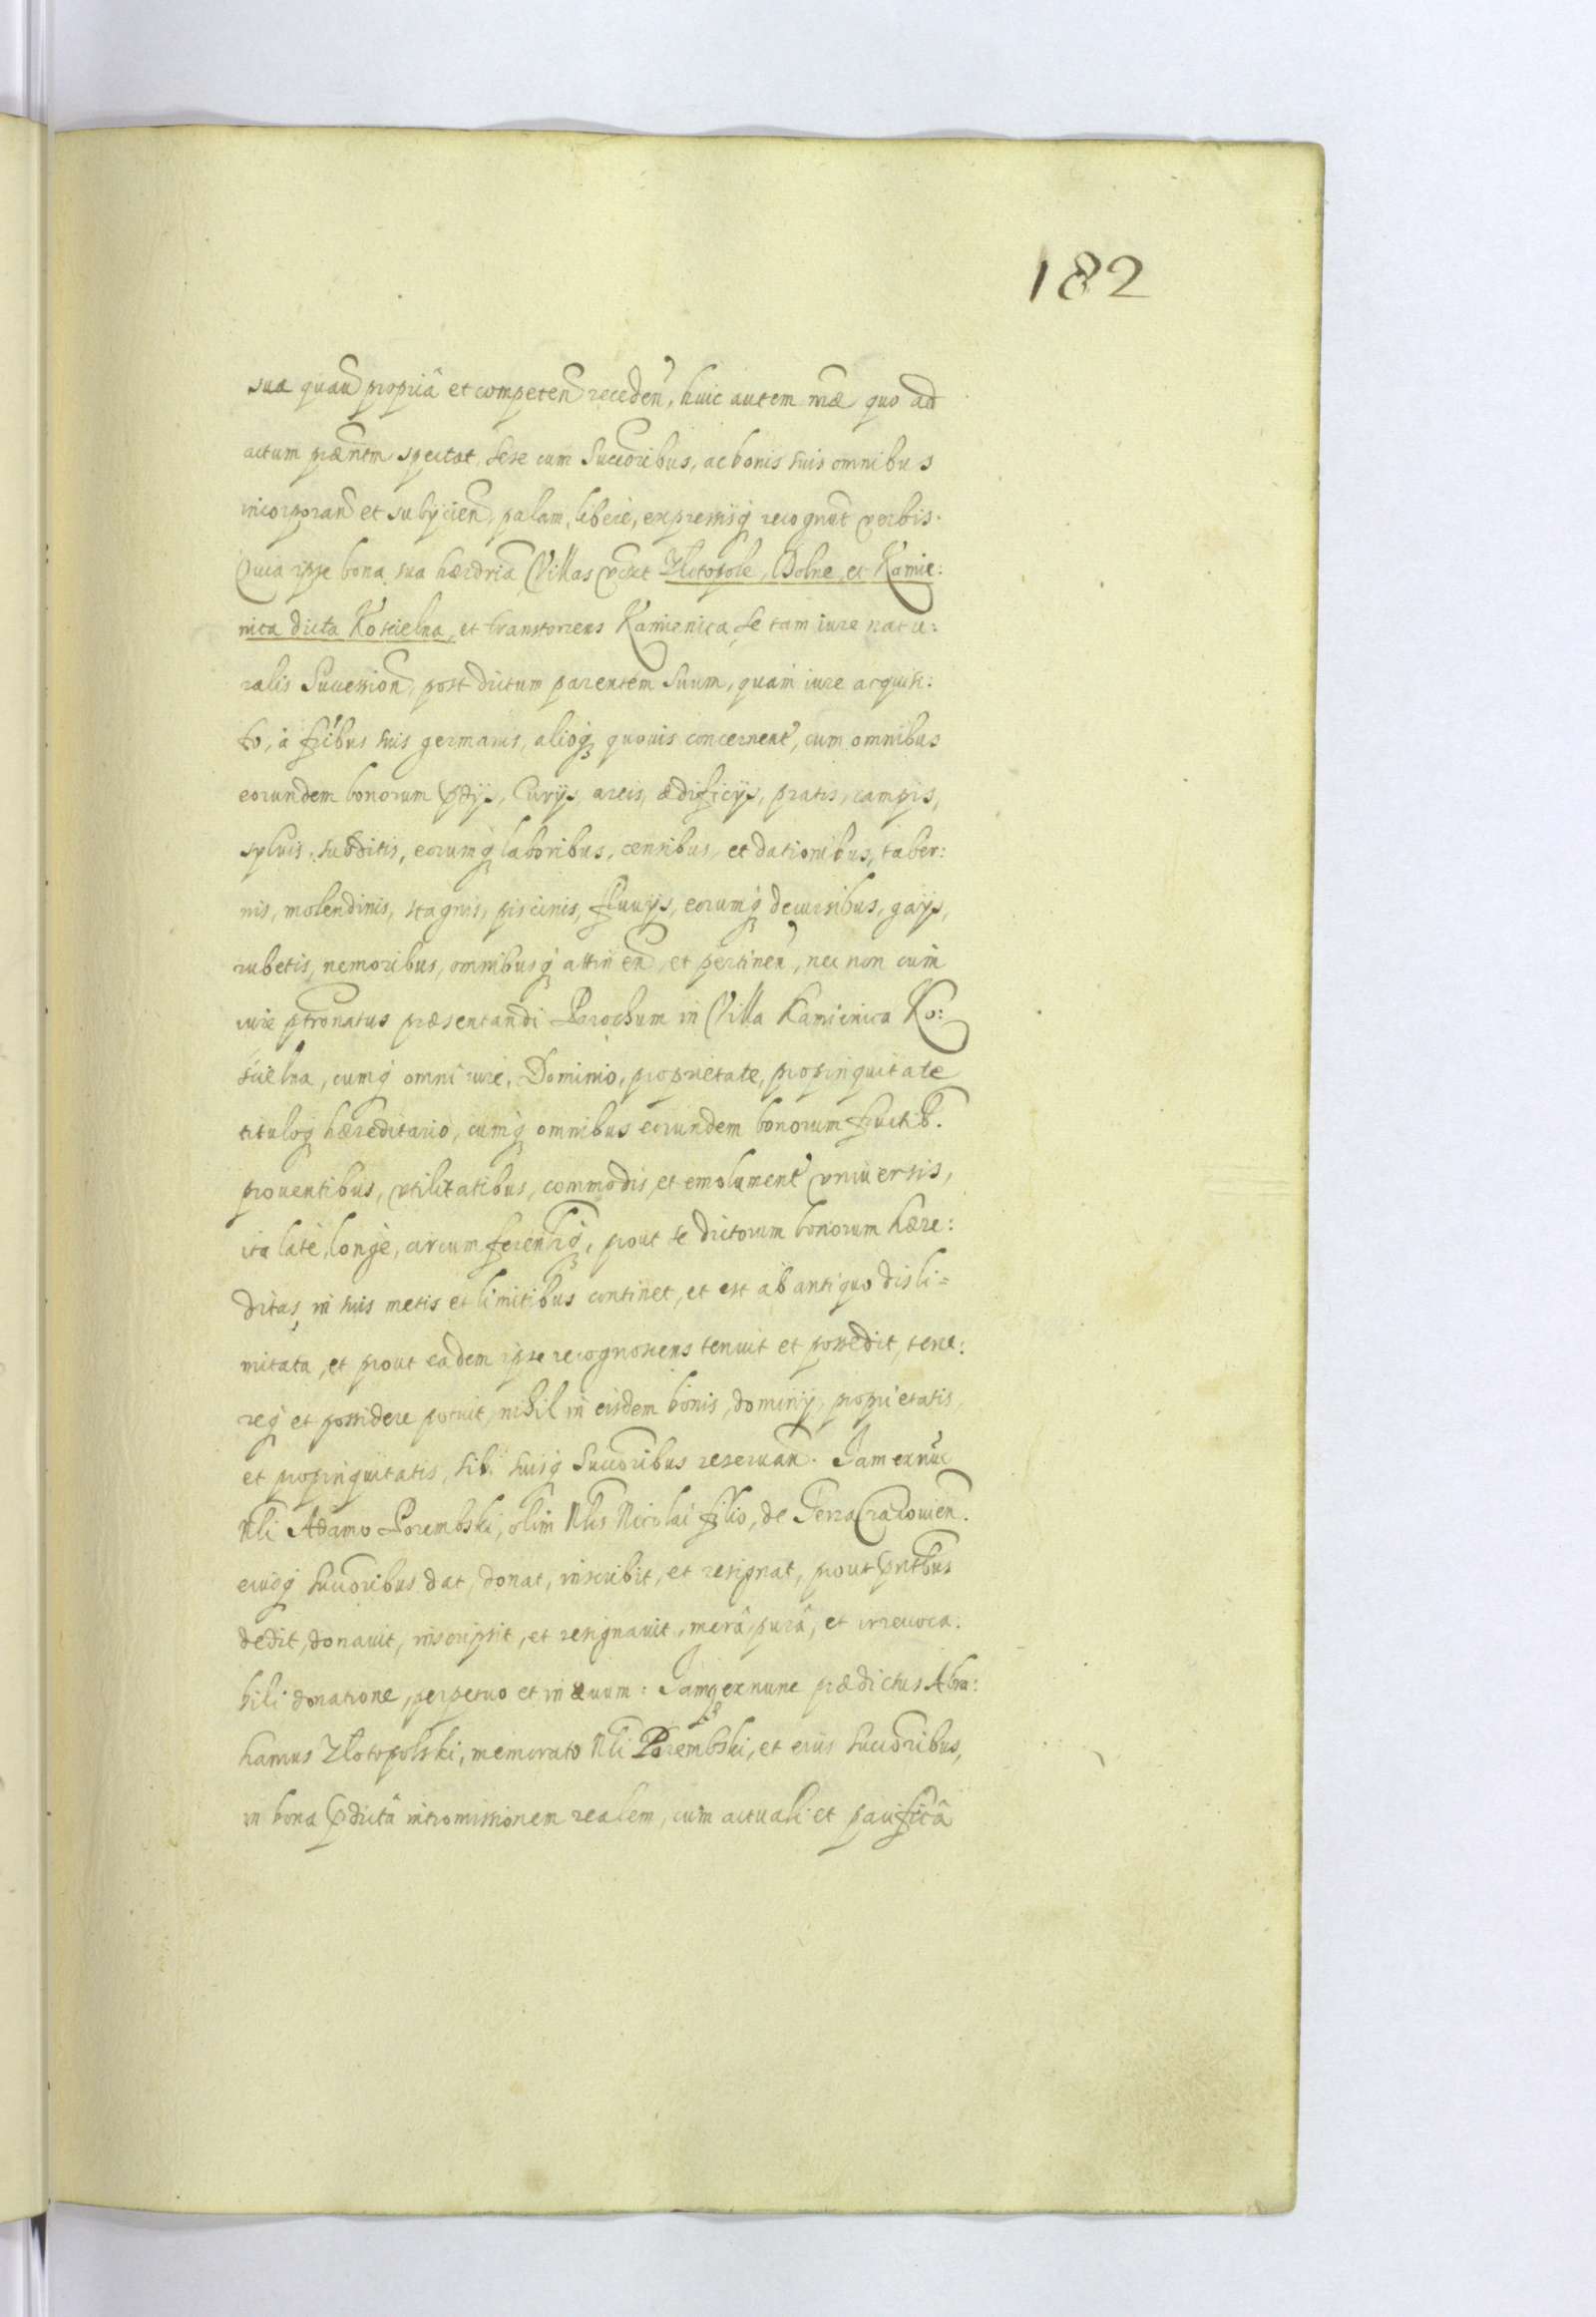 182
sua quavis propriâ et competen receden, huic autem mæ quo ad
actum præntm spectat, sese cum Succoribus, ac bonis suis omnibus
incorporan et subijcien, palam, liberè, expressisq recognuit verbis.
Quia ipse bona sua hærdria Villas vdzt Zlotopole, Dolne, et Kamie:
nica dicta Koscielna, et transtorrens Kamienica, se tam iure natu:
ralis Succession, post dictum parentem Suum, quam iure acquisi:
to, à fribus suis germanis, alioq quouis concernent, cum omnibus
eorundem bonorum pdijs, Curijs, areis, ædificijs, pratis, campis,
syluis, subditis, eorumq laboribus, censibus, et dationibus, taber:
nis, molendinis, stagnis, piscinis, fluuijs, eorumq decursibus, gaijs,
rubetis, nemoribus, omnibusq attinen, et pertinen, nec non cum
iure ptronatus præsentandi Parochum in Villa Kamienica Ko:
scielna, cumq omni iure, Dominio, proprietate, propinquitate
tituloq hæreditario, cumq omnibus eorundem bonorum fructib.
prouentibus, vtilitatibus, commodis, et emolument vniuersis,
ita latè, longè, circumferentijq, prout se dictorum bonorum hære:
ditas, in suis metis et limitibus continet, et est ab antiquo disli=
mitata, et prout eadem ipse recognoscens tenuit et possedit, tene:
req et possidere potuit, nihil in eisdem bonis, dominij, proprietatis,
et propinquitatis, sibi suisq Succoribus reseruan. Iam exnuc
Nli Adamo Porembski, olim Nlis Nicolai filio, de Terra Cracouien.
eiusq Succoribus dat, donat, inscribit, et resignat, prout pntbus
dedit, donauit, inscripsit, et resignauit, merâ, purâ, et irreuoca:
bili donatione, perpetuo et in æuum: Iamq exnunc prædictus Abra:
hamus Zlotopolski, memorato Nli Porembski, et eius Succoribus,
in bona pdicta intromissionem realem, cum actuali et pacificâ